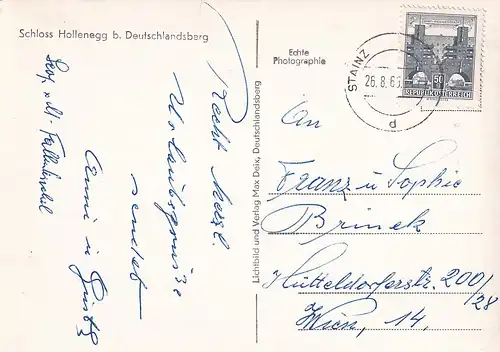 Schloss Hollenegg b. Deutschlandsberg
Echte
Photographie
STAINZ
26.8.63
d
50
REPUBLIK ÖSTERREICH
Recht herzl.
Urlaubsgrüße
sendet
Anni u.
Lichtbild und Verlag Max Deix, Deutschlandsberg
An
Franz u Sophie
Brinek
Hütteldorferstr. 200/
28
Wien, 14,